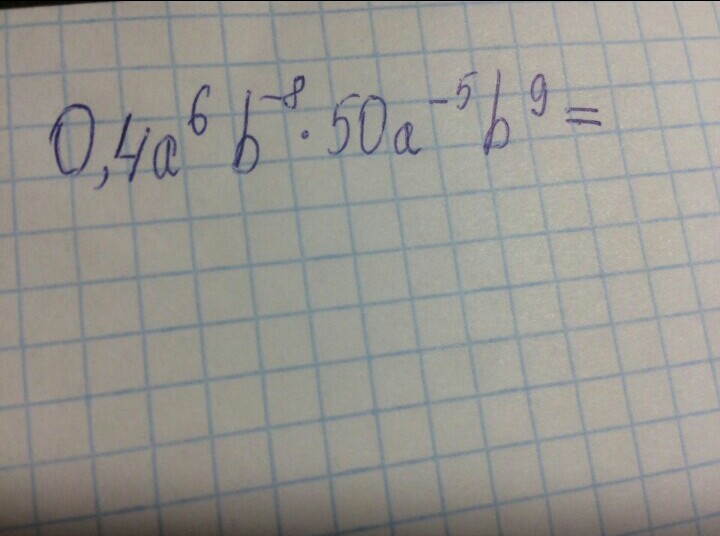 0,4a⁶b⁻⁸·50a⁻⁵b⁹=